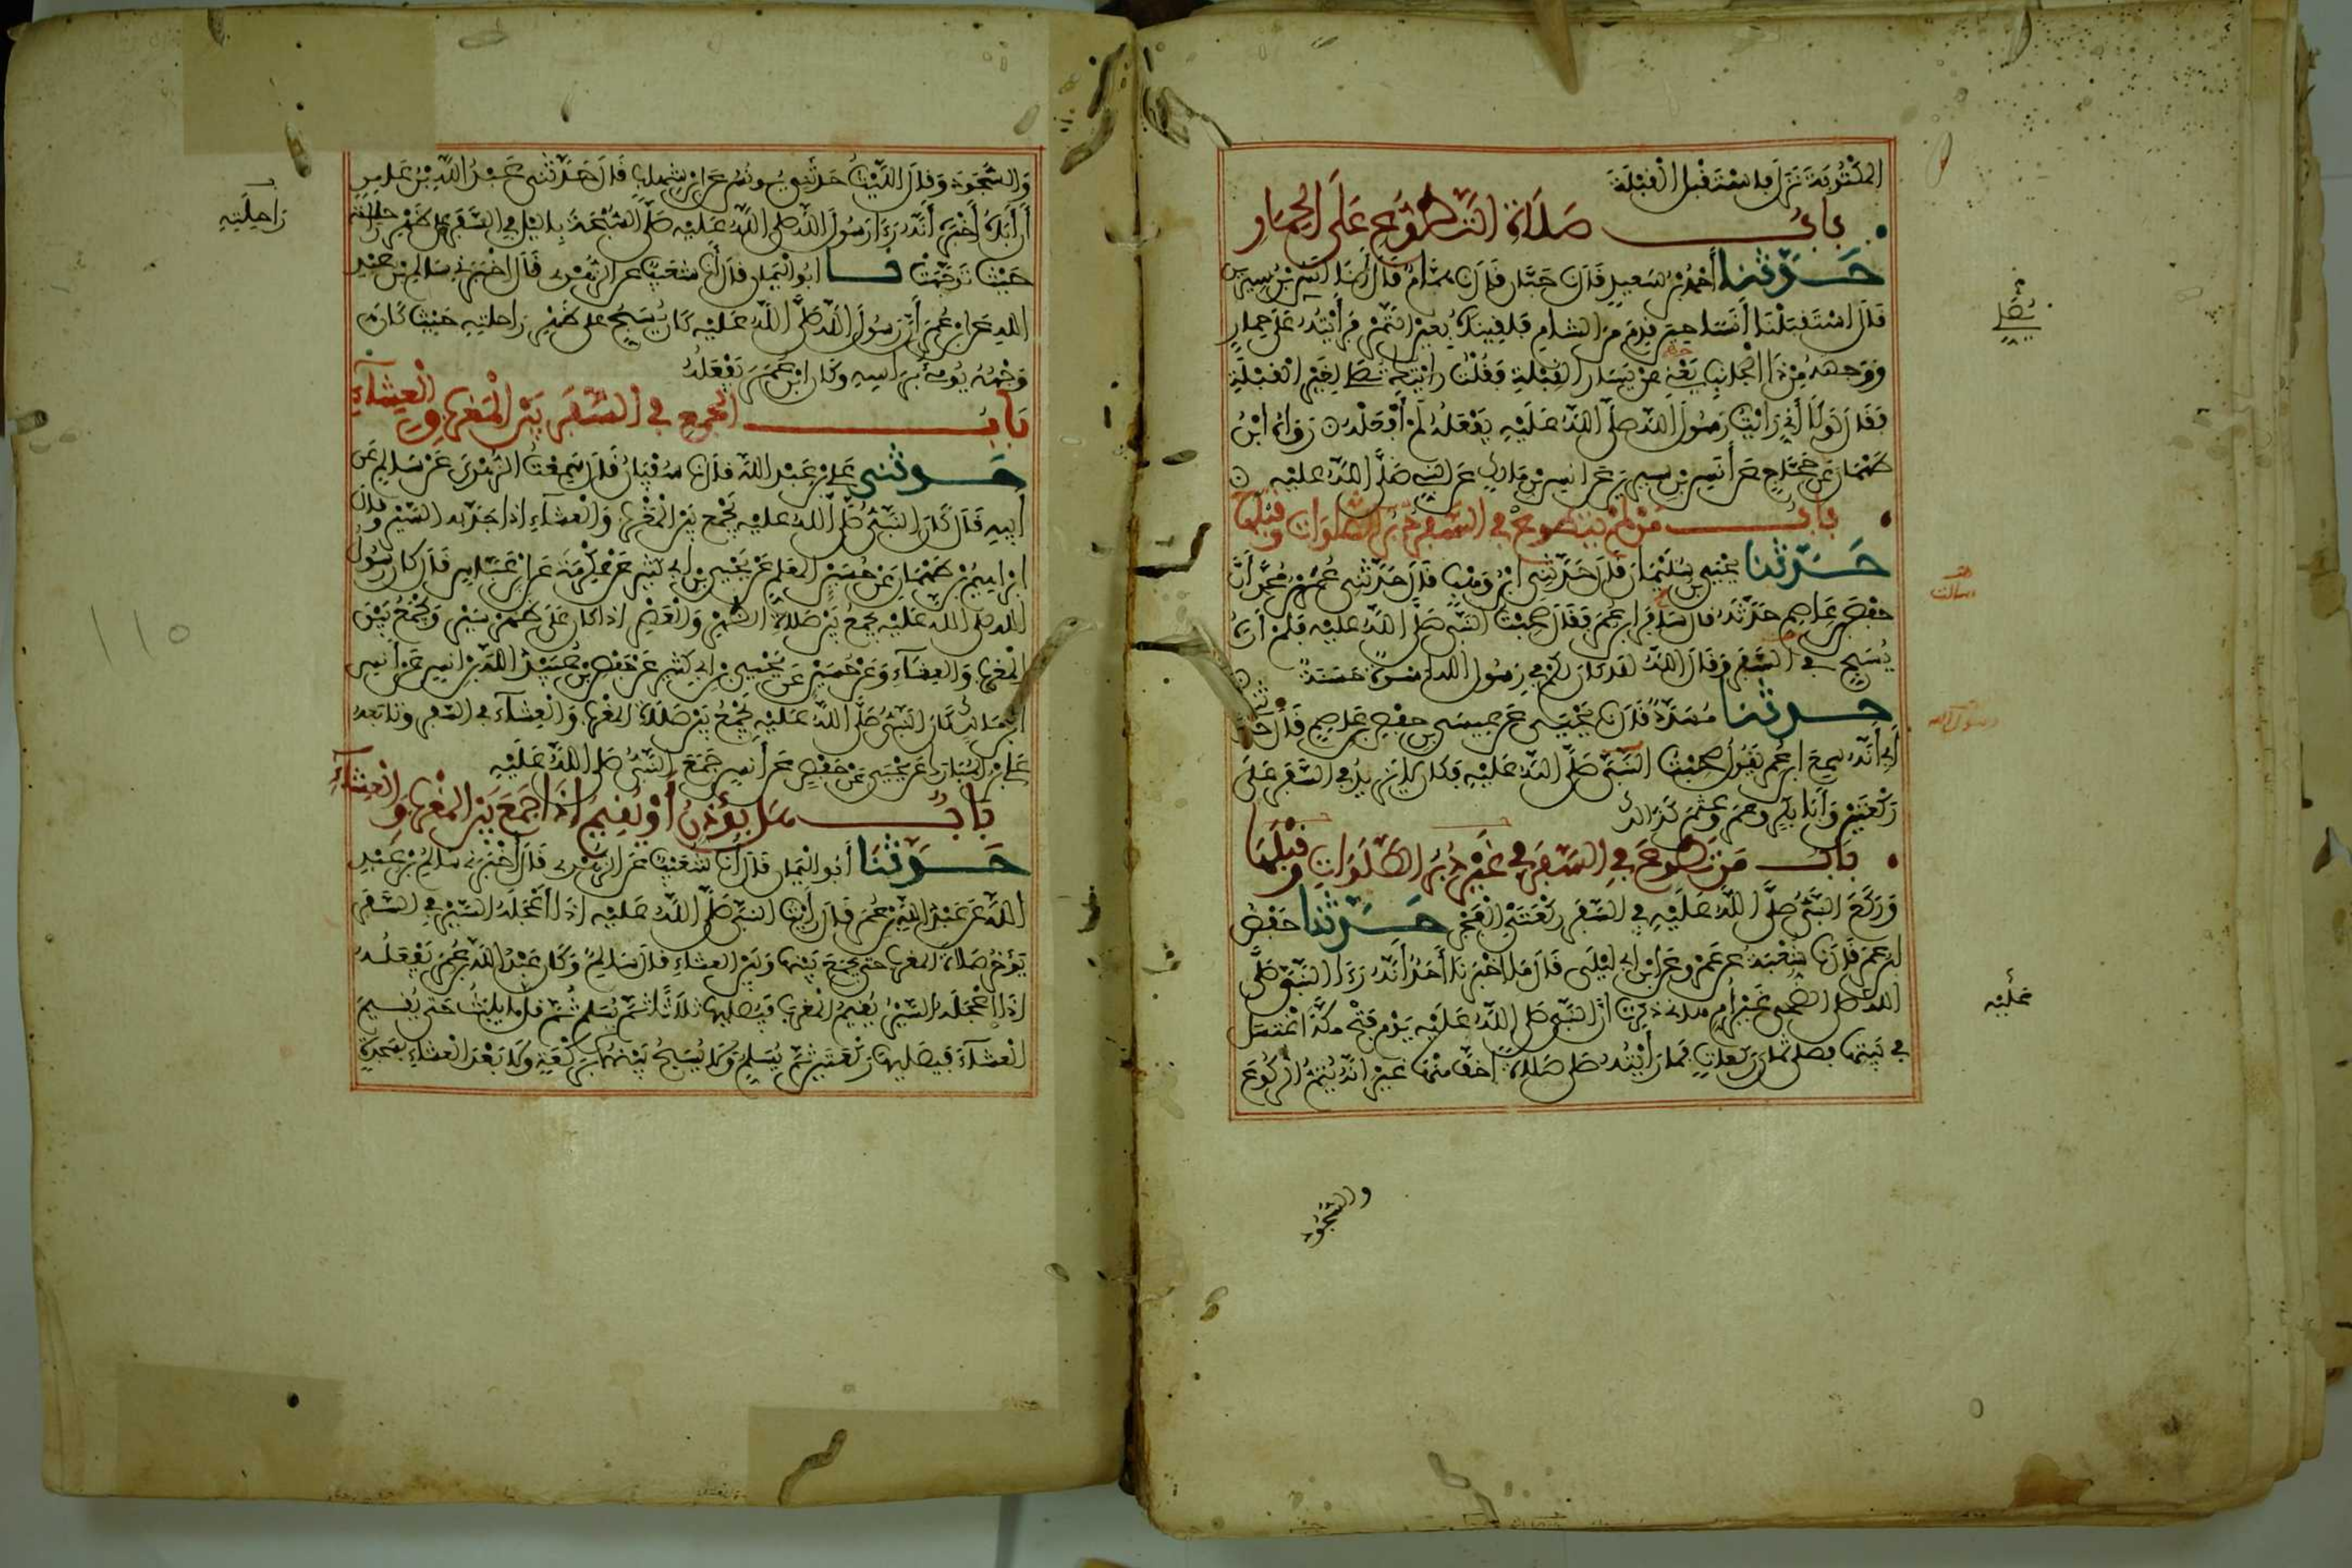 المكتوبة نزل فاستقبل القبلة
باب صلاة التطوع على الحمار
حدثنا أحمد بن سعيد قال نا حبان قال نا همام قال نا أنس بن سيرين
قال استقبلنا أنسا حين قدم من الشام فلقيناه بعين التمر فرأيته على حمار
ووجهه من ذا الجانب يعني عن يسار القبلة فقلت رأيتك تصلي لغير القبلة
فقال لولا أني رأيت رسول الله صلى الله عليه يفعله لم أفعله رواه ابن
طهمان عن حجاج عن أنس بن سيرين عن أنس بن مالك عن النبي صلى الله عليه
باب من لم يتطوع في السفر دبر الصلوات وقبلها
حدثنا يحيى بن سليمان قال حدثني ابن وهب قال حدثني عمر بن محمد أن
حفص بن عاصم حدثه قال سافر ابن عمر فقال صحبت النبي صلى الله عليه فلم أره
يسبح في السفر وقال الله لقد كان لكم في رسول الله إسوة حسنة
حدثنا مسدد قال نا يحيى عن عيسى بن حفص بن عاصم قال حدثني
أبي أنه سمع ابن عمر يقول صحبت النبي صلى الله عليه فكان لا يزيد في السفر على
ركعتين وأبا بكر وعمر وعثمن كذلك
باب من تطوع في السفر في غير دبر الصلوات وقبلها
وركع النبي صلى الله عليه في السفر ركعتي الفجر حدثنا حفص
ابن عمر قال نا شعبة عن عمرو عن ابن أبي ليلى قال ما أخبرنا أحد أنه رءا النبي صلى
الله صلى الضحى غير أم هانئ ذكرت أن النبي صلى الله عليه يوم فتح مكة اغتسل
في بيتها فصلى ثمان ركعات فما رأيته صلى صلاة أخف منها غير أنه يتم الركوع
والسجود
يصلي
رسالت
رسول الله
عليه
والسجود وقال الليث حدثني يونس عن ابن شهاب قال حدثني عبد الله بن عامر
أن أباه أخبره أنه رءا رسول الله صلى الله عليه صلى السبحة بالليل في السفر على ظهر راحلته
حيث توجهت نا أبو اليمان قال أنا شعيب عن الزهري قال أخبرني سالم بن عبد
الله عن ابن عمر أن رسول الله صلى الله عليه كان يسبح على ظهر راحلته حيث كان
وجهه يومئ برأسه وكان ابن عمر يفعله
باب الجمع في السفر بين المغرب والعشاء
حدثني علي بن عبد الله قال نا سفيان قال سمعت الزهري عن سالم عن
أبيه قال كان النبي صلى الله عليه يجمع بين المغرب والعشاء إذا جد به السير وقال
ابراهيم بن طهمان عن حسين المعلم عن يحيى بن أبي كثير عن عكرمة عن ابن عباس قال كان رسول
الله صلى الله عليه يجمع بين صلاة الظهر والعصر إذا كان على ظهر سير ويجمع بين
المغرب والعشاء وعن حسين عن يحيى بن أبي كثير عن حفص بن عبيد الله بن أنس عن أنس
ابن مالك كان النبي صلى الله عليه يجمع بين صلاة المغرب والعشاء في السفر وتابعه
علي بن المبارك عن يحيى عن حفص عن أنس جمع النبي صلى الله عليه
باب هل يؤذن أو يقيم إذا جمع بين المغرب والعشاء
حدثنا أبو اليمان قال أنا شعيب عن الزهري قال أخبرني سالم بن عبد
الله عن عبد الله بن عمر قال رأيت النبي صلى الله عليه إذا أعجله السير في السفر
يؤخر صلاة المغرب حتى يجمع بينها وبين العشاء قال سالم وكان عبد الله بن عمر يفعله
إذا أعجله السير يقيم المغرب فيصليها ثلاثا ثم يسلم ثم قل ما يلبث حتى يقيم
العشاء فيصليها ركعتين ثم يسلم ولا يسبح بينهما بركعة ولا بعد العشاء بسجدة
راحلته
١١٥